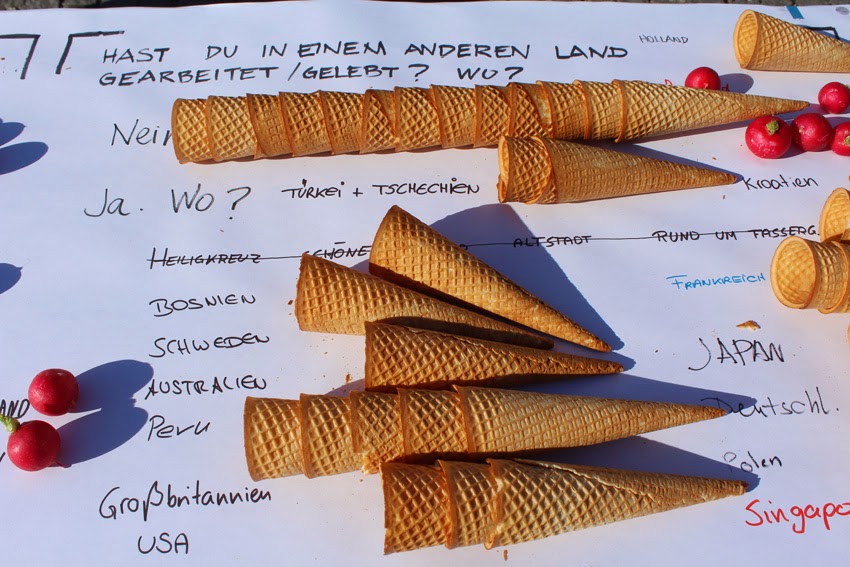 HAST DU IN EINEM ANDEREN LAND
GEARBEITET/GELEBT? WO?
HOLLAND
Nein
Ja. Wo?
TÜRKEI + TSCHECHIEN
Kroatien
HEILIGKREUZ
ALTSTADT
RUND UM FASSERG.
BOSNIEN
FRANKREICH
SCHWEDEN
JAPAN
AUSTRALIEN
Deutschl.
Peru
Polen
Großbritannien
USA